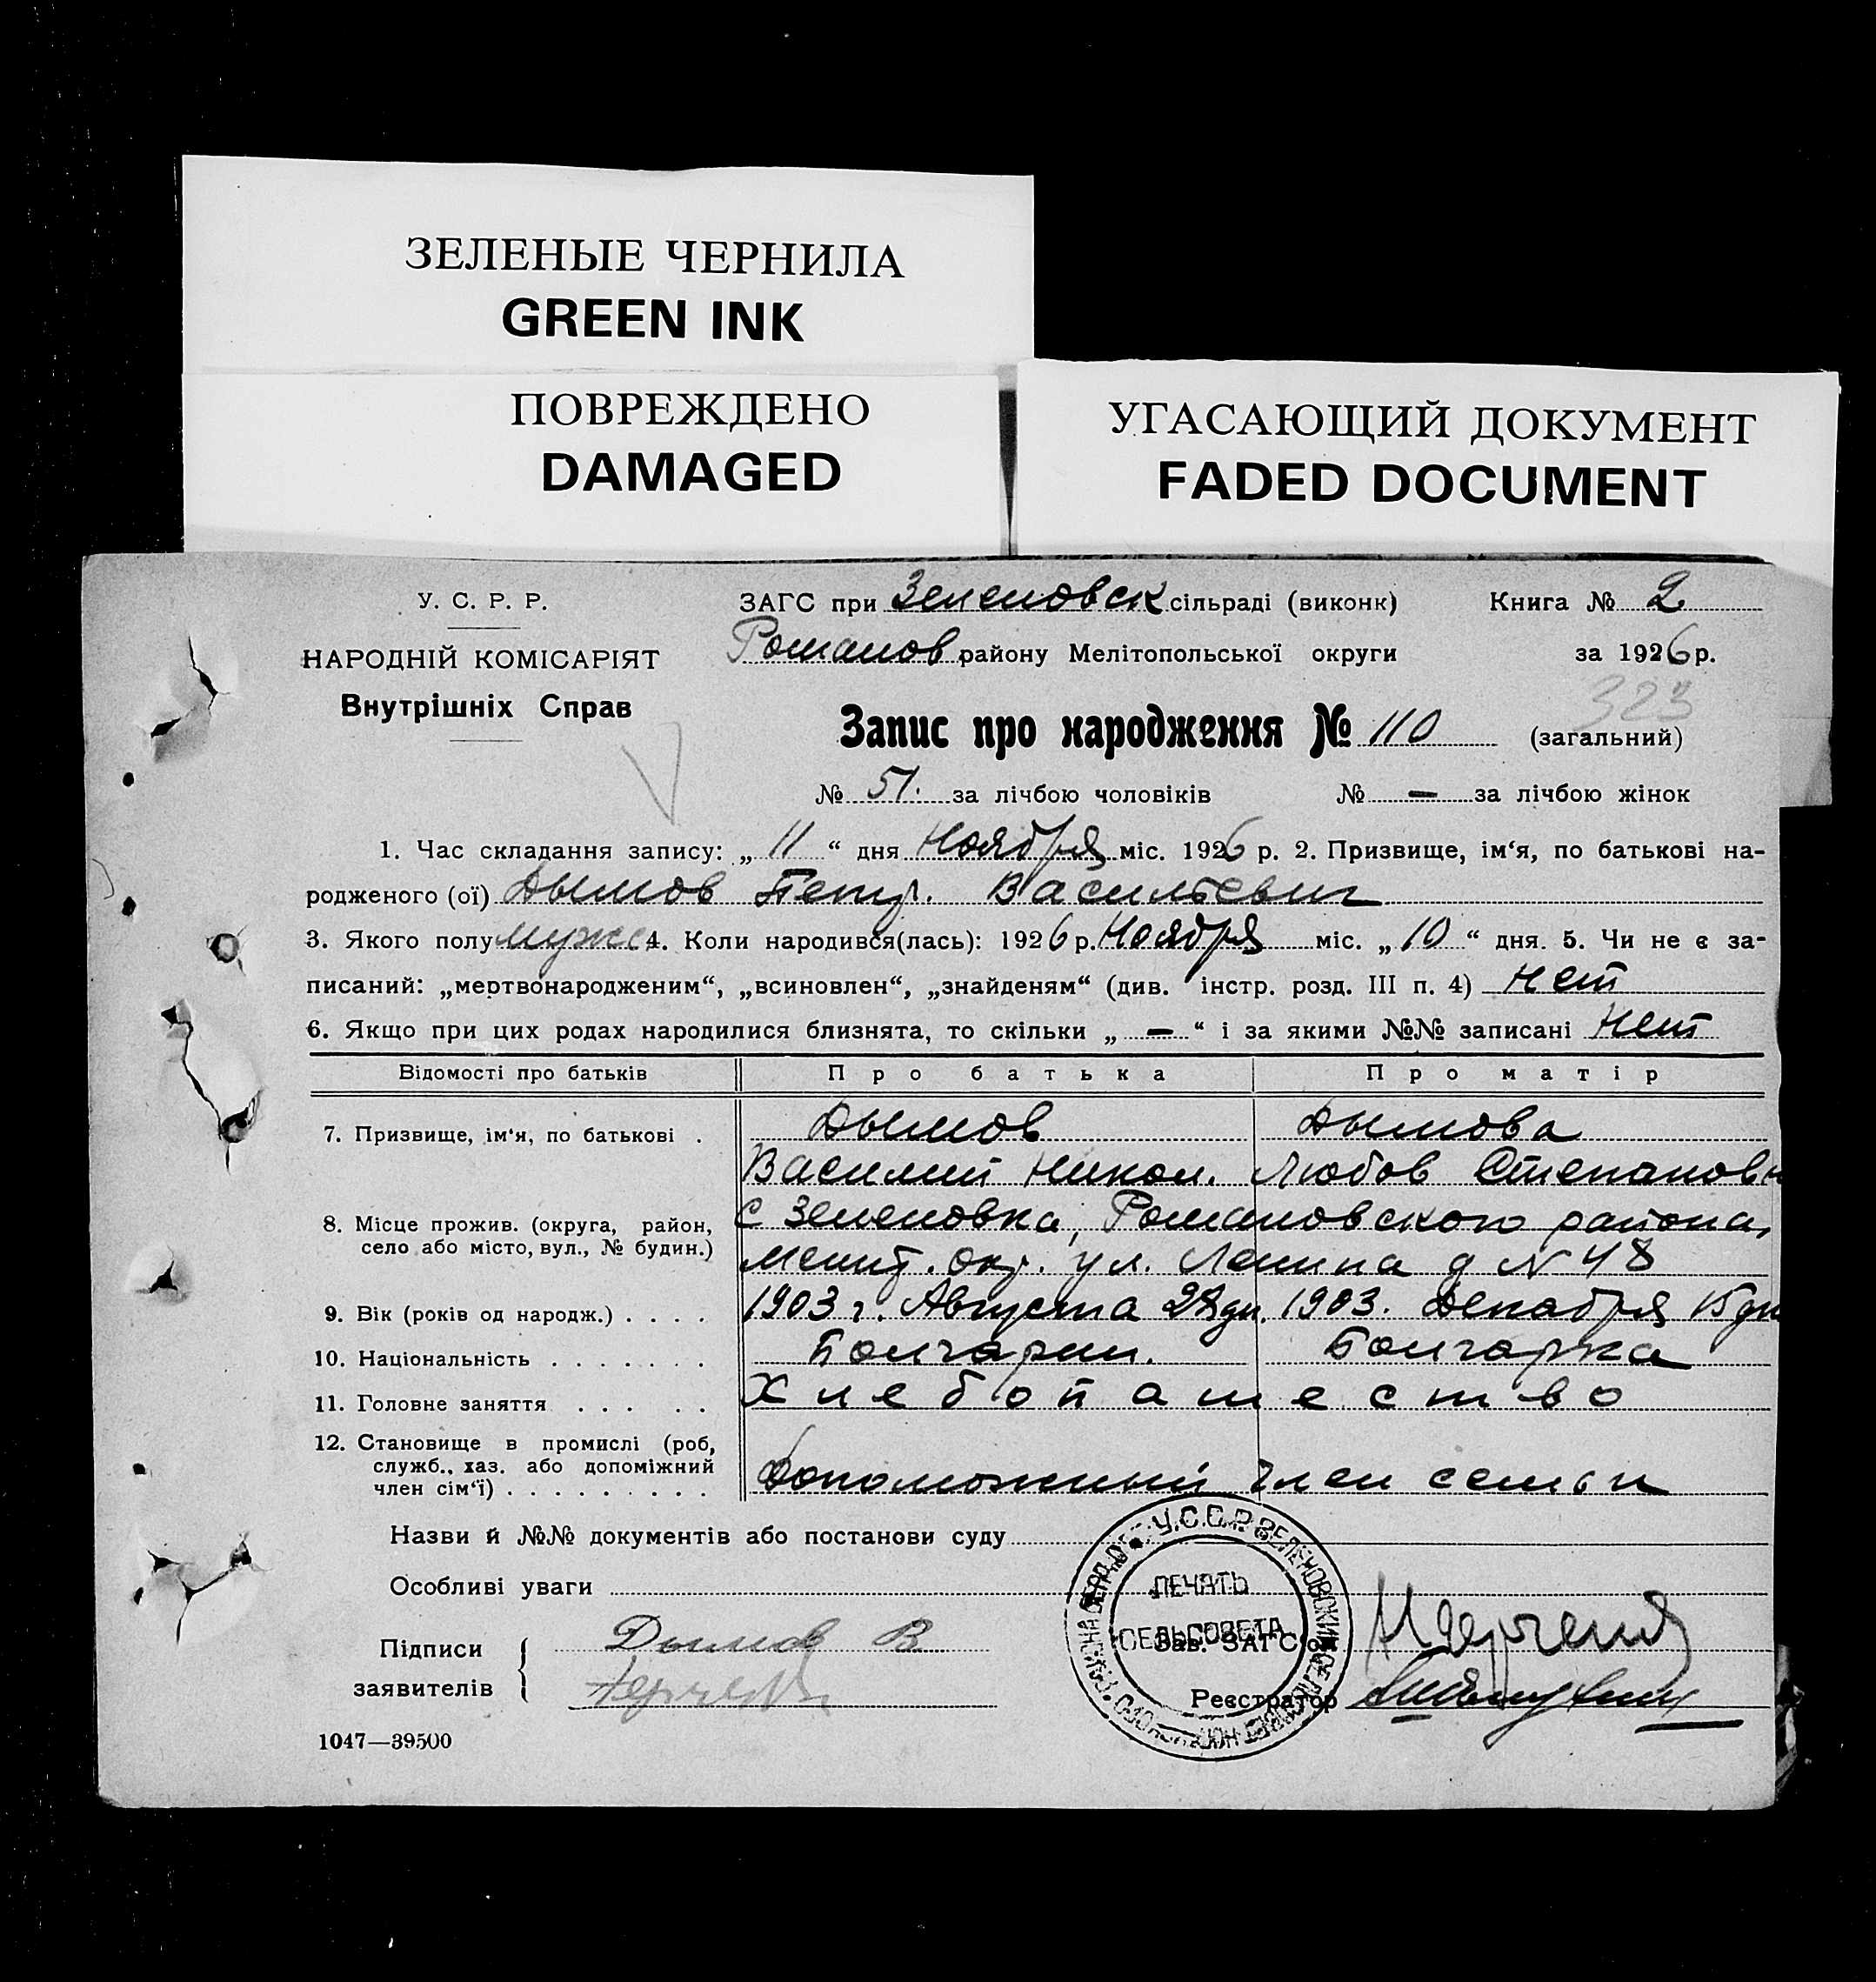 ЗЕЛЕНЫЕ ЧЕРНИЛА
GREEN INK
ПОВРЕЖДЕНО
DAMAGED
УГАСАЮЩИЙ ДОКУМЕНТ
FADED DOCUMENT
У. С. Р. Р.
НАРОДНІЙ КОМІСАРІЯТ
Внутрішніх Справ
ЗАГС при Зеленовск сільраді (виконк) Книга № 2
Романов району Мелітопольської округи за 1926 р.
323
Запис про народження № 110 (загальний)
№ 51. за лічбою чоловіків № — за лічбою жінок
1. Час складання запису: „ 11 “ дня Ноября міс. 1926 р. 2. Призвище, ім‘я, по батькові на-
родженого (ої) Дымов Петр. Васильевич
3. Якого полу мужс 4. Коли народився(лась): 1926 р. Ноября міс. „ 10 “ дня. 5. Чи не є за-
писаний: „мертвонародженим“, „всиновлен“, „знайденям“ (див. інстр. розд. III п. 4) Нет
6. Якщо при цих родах народилися близнята, то скільки „ — “ і за якими №№ записані Нет
Відомості про батьків Про батька Про матір
7. Призвище, ім‘я, по батькові . Дымов Дымова
Василий Никол. Любов Степановн
8. Місце прожив. (округа, район, село або місто, вул., № будин.) с Зеленовка, Романовского района,
Мелит. окр. ул. Ленина д N 48
9. Вік (років од народж.) . . . . 1903 г. Августа дн. 1903. Декабря 15 дн
10. Національність . . . . . . . Болгарин. Болгарка
11. Головне заняття . . . . . Хлебопашество
12. Становище в промислі (роб, служб., хаз. або допоміжний член сім‘ї) . . . . . . . . . Допоможный член семьи
Назви й №№ документів або постанови суду
Особливі уваги
У.С.С.Р. ЗЕЛЕНОВСКИЙ
ПЕЧАТЬ
СЕЛЬСОВЕТА
Підписи заявителів
Дымов В
Зав. ЗАГС'ом
Реєстратор
1047—39500